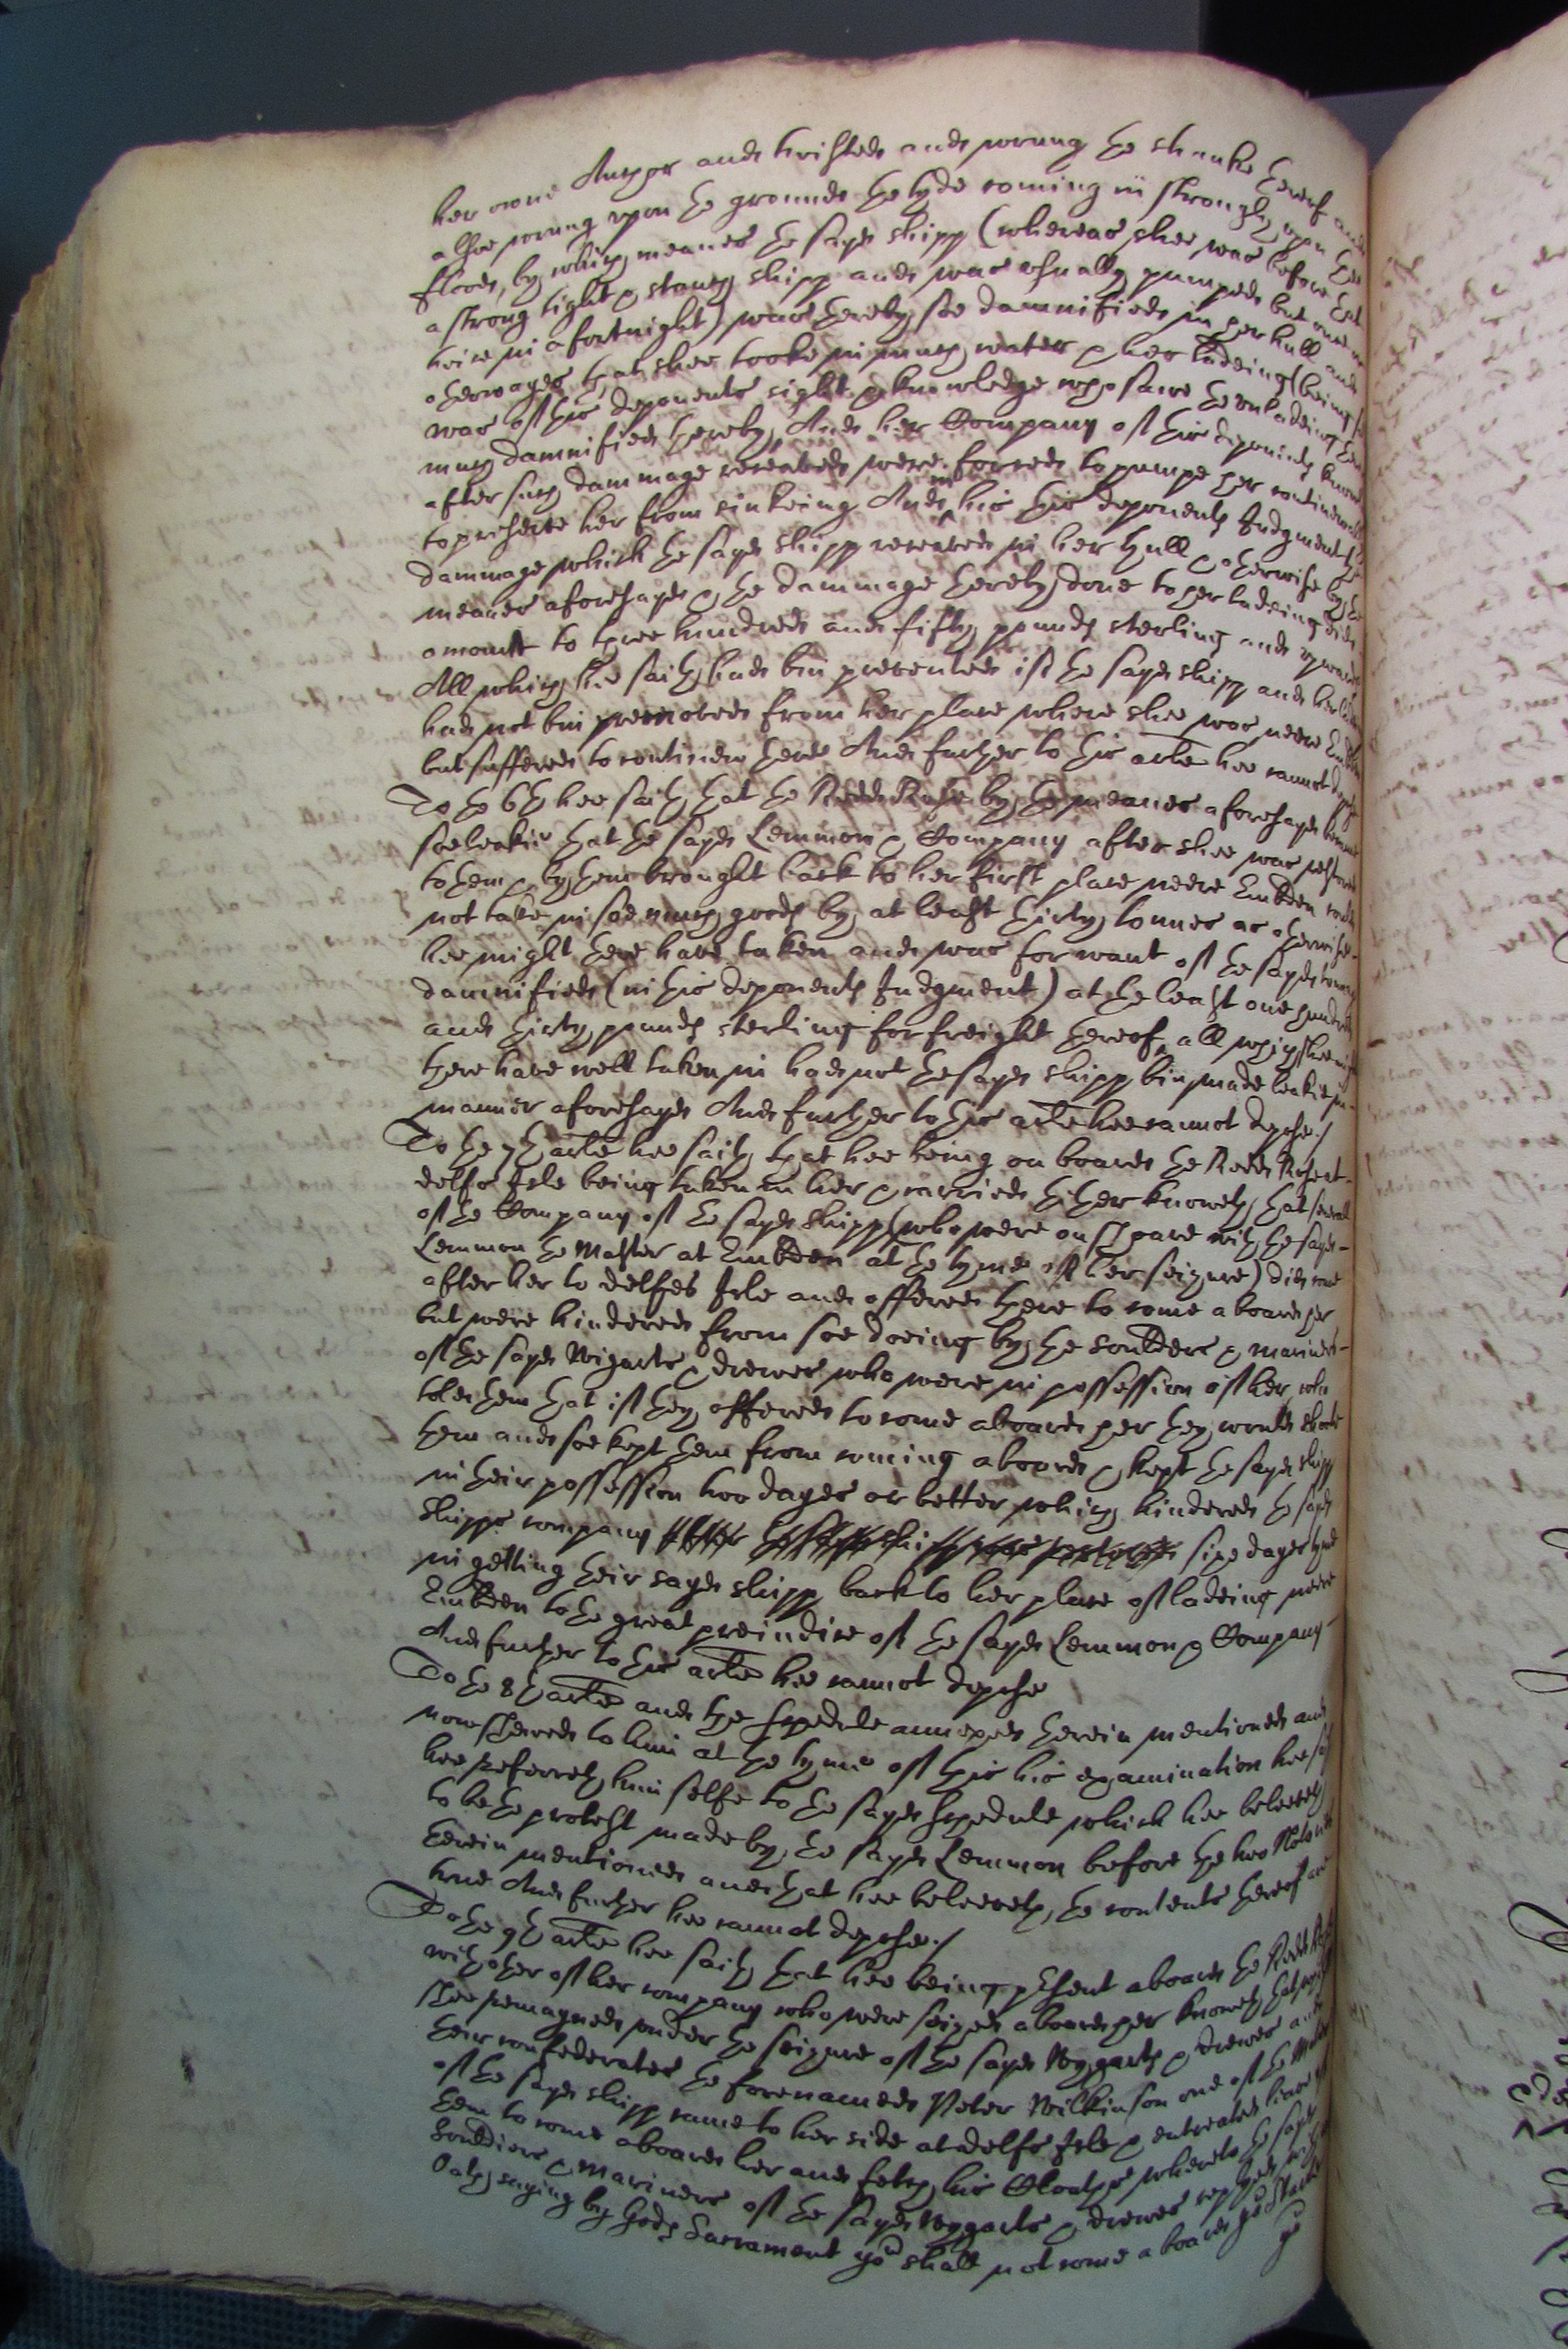 her owne Anchor and twisted and wrung the shanke thereof and
alsoe wrung upon the grounde the tyde coming in strongly upon the
floode, by which meanes the sayd shipp (whereas shee was before that
a strong tight & stanch shipp and was usually pumped but once or
twise in a fortnight) was thereby soe damnified in her hull and
otherwayes that shee tooke in much water & her ladeing (being
was of this deponents sight & knowledge who sawe the unladeing
much damnified thereby, And her Company of this deponents knowl
after such dammage receaved were forced to pumpe her continually
to preserve her from sinkeing And in his this deponents Judgment the
dammage which the sayd shipp receaved in her hull & otherwise by the
meanes aforesayd & the dammage thereby done to her ladeing did
amount to three hundred and fifty pounds sterling and upwards
All which hee saith had bin prevented if the sayd shipp and her
had not bin removed from her place where shee was neere Embden
but suffered to continew there And further to this arte hee cannot depose
To the 6th hee saith that the Redd Rose by the meanes aforesayd became
soe leakie that the sayd Lemmon & Company after shee was restored
to them & by them brought back to her first place neere Embden could
not take in soe much goods by at least thirty tonnes as otherwise
hee might there have taken and was for want of the sayd tonnes
damnified (in this deponents Judgment) at the least one hundred
and thirty pounds sterling for freight thereof, all which shee might
there have well taken in had not the sayd shipp bin made leakie in
manner aforesayd And further to this arte hee cannot depose./
To the 7th arte hee saith that hee being on board the Redd Rose at
delfs Isle being taken in her & carried thither knoweth that severall
of the Company of the sayd shipp (who were on shoare with the sayd
Lemmon the Master at Embden at the tyme of her seizure) did come
after her to delfes Isle and offered there to come aboard her
but were hindered from soe doeing by the souldiers & mariners
of the sayd Wigarts & drewes who were in possession of her who
told them that if they offered to come aboard her they would shoote
them and soe kept them from coming aboard & kept the sayd shipp
in their possession two dayes or better which hindered the sayd
Shipps company sixe dayes tyme
in getting their sayd shipp back to her place of ladeing neere
Embden to the great preiudice of the sayd Lemmon & Company
And further to this arte hee cannot depose
To the 8th arte and the schedule annexed therein mentioned and
now shewed to him at the tyme of this his examination hee saith
hee referreth him selfe to the sayd schedule which hee beleeveth
to be the protest made by the sayd Lemmon before the two Notaries
therein mentioned and that hee beleeveth, the contents thereof are
true And further hee cannot depose./
To the 9th arte hee saith that hee being present aboard the Redd Rose
with other of her company who were seized aboard her knoweth that
shee remayned under the seizure of the sayd Wygarts & drewes and
their confederates the forenamed Peter Wilkinson one of the
of the sayd shipp came to her side at delfs Isle & entreated leave of
them to come aboard her and fetch his Cloathes whereto the sayd
Souldiers & Mariners of the sayd Wygarts & drewes replyed with
Oath saying by Gods Sacrament you shall not come aboard